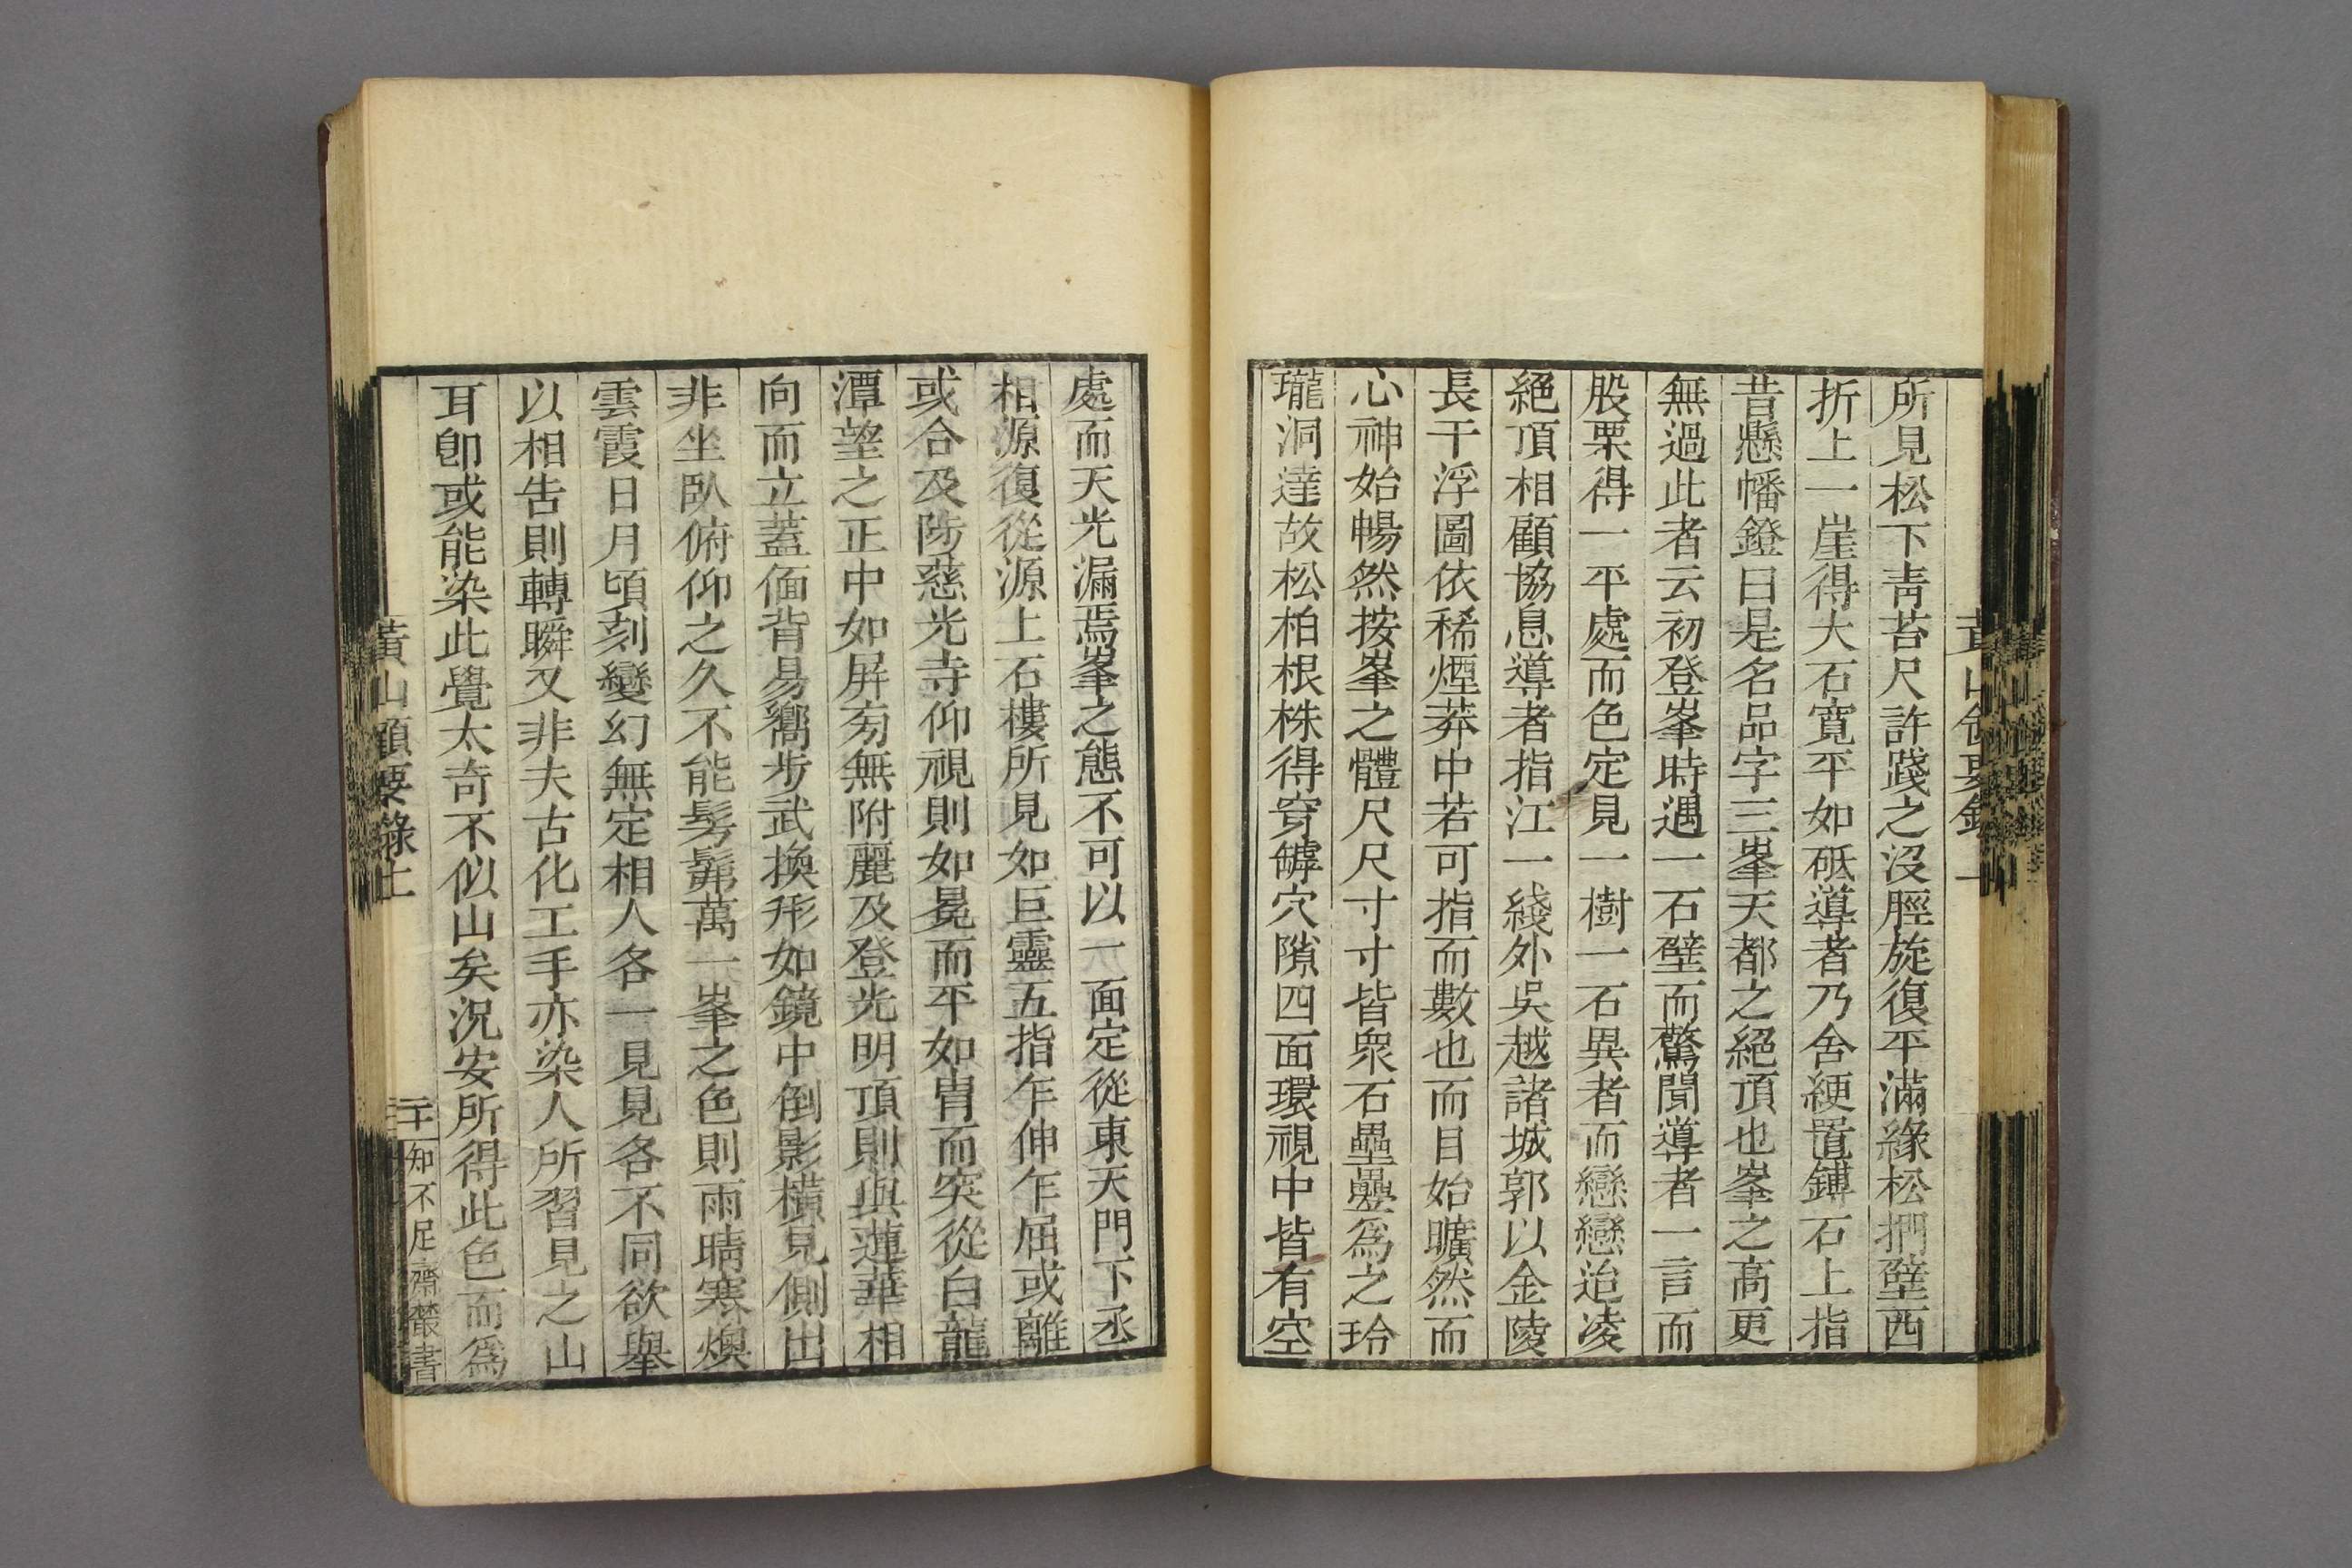 所見松下靑苔尺許踐之沒脛旋復平滿緣松捫壁西
折上一崖得大石寬平如砥導者乃舍綆置鏄石上指
昔懸幡鐙曰是名品字三峯天都之絕頂也峯之高更
無過此者云初登峯時遇一石壁而驚聞導者一言而
股栗得一平處而色定見一樹一石異者而戀戀迨凌
絕頂相顧協息導者指江一綫外吳越諸城郭以金陵
長干浮圖依稀煙莽中若可指而數也而目始曠然而
心神始暢然按峯之體尺尺寸寸皆衆石壘疊爲之玲
瓏洞達故松柏根株得穿罅穴隙四面環視中皆有空
處而天光漏焉峯之態不可以一面定從東天門下丞
相源復從源上石樓所見如巨靈五指乍伸乍屈或離
或合及陟慈光寺仰視則如冕而平如胄而突從白龍
潭望之正中如屏㫄無附麗及登光明頂則與蓮華相
向而立蓋偭背易嚮步武換形如鏡中倒影橫見側出
非坐臥俯仰之久不能髣髴萬一峯之色則雨晴寒燠
雲霞日月頃刻變幻無定相人各一見見各不同欲舉
以相告則轉瞬又非夫古化工手亦染人所習見之山
耳卽或能染此覺太奇不似山矣況安所得此色而爲
黃山領要錄上
二十
知不足齋叢書